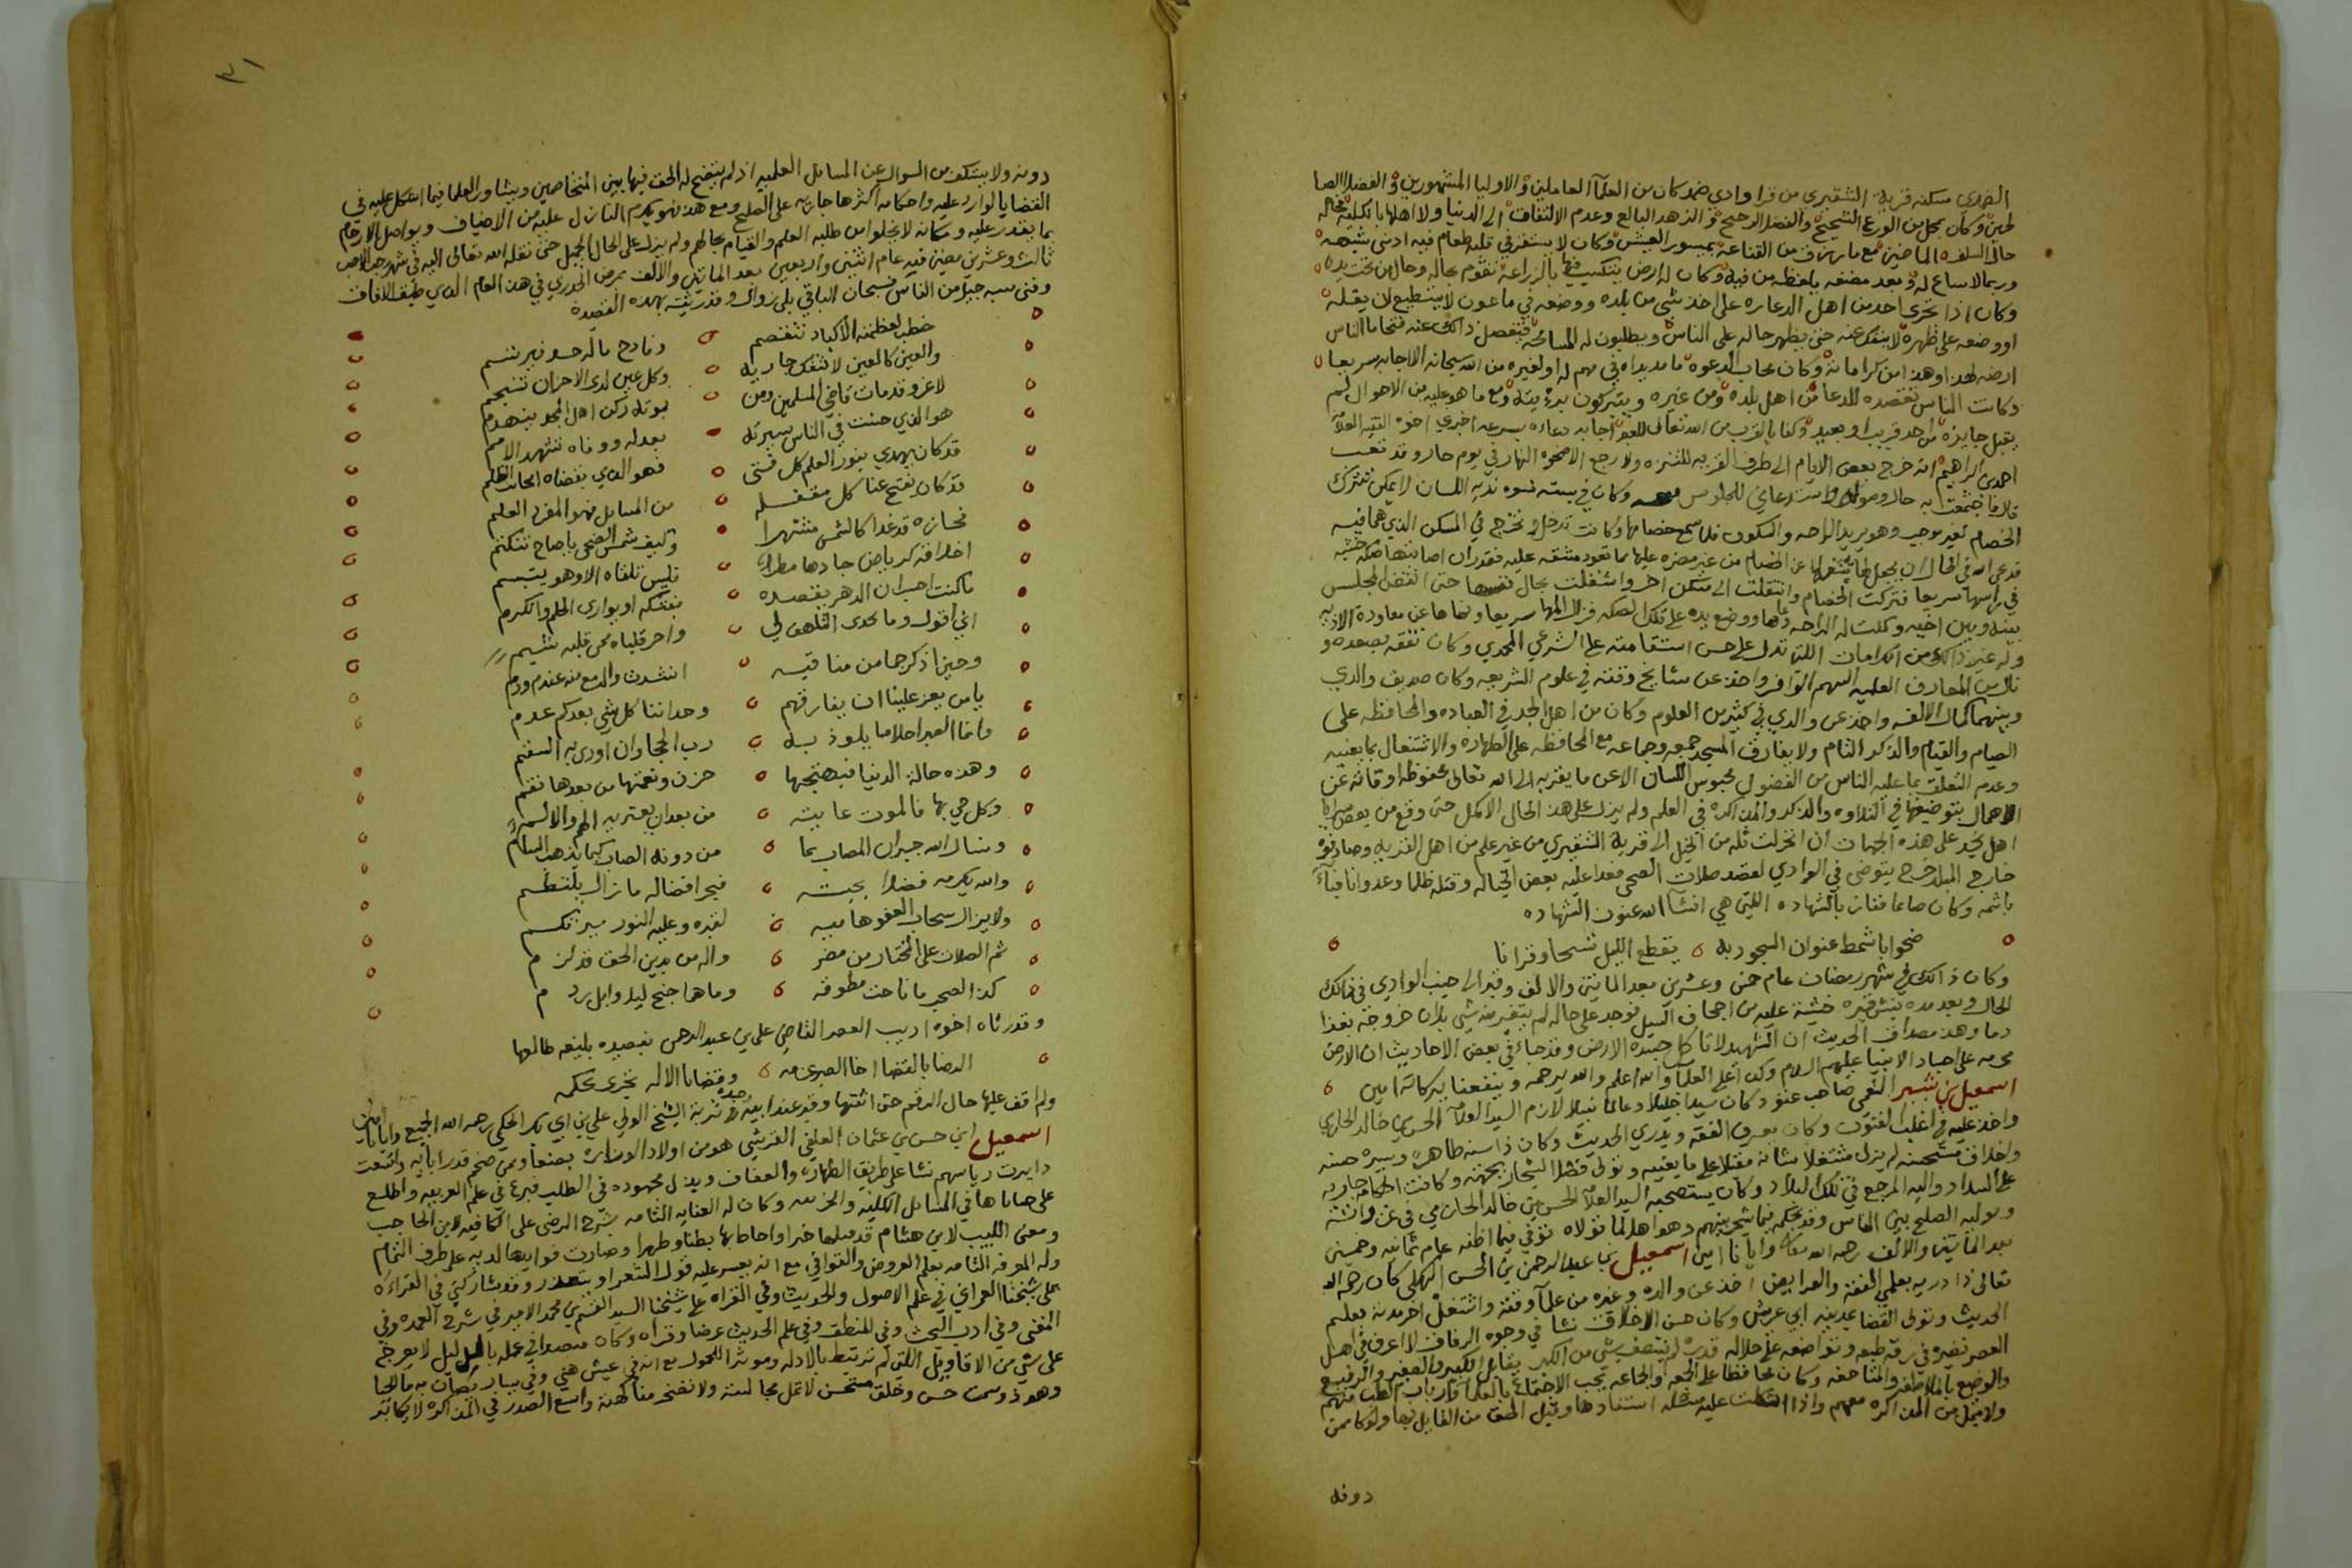 الضمدي سكنه قرية الشقيري من قرا وادي ضمد كان من العلمآ العاملين والاوليا المشهورين والفضلا الصا
لحين وكان بمحل من الورع الشحيح والفضل الرجيح والزهد البالغ وعدم الالتفات الى الدنيا ولا اهلها بالكلية فحاله
حال السلف الماضين مع ما رزق من القناعة بميسور العيش وكان لا يستقر في قلبه طعام فيه ادنى شبهه
وربما لا ساغ له وبعد مضغه يلفظه من فيه وكان له ارض يتكسب فيها بالزراعة تقوم بحاله وحال من تحت يده
وكان اذا تجرى احد من اهل الدعاره على اخذ شي من بلده ووضعه في ماعون لا يستطيع ان يقله
او وضعه على ظهره لا ينفك عنه حتى يظهر حاله على الناس ويطلبون له المسامحة فينفصل ذالك عنه فتحاما الناس
ارضه لهذا وهذا من كراماته وكان مجاب الدعوه ما مد يداه في مهم له او لغيره من الله سبحانه الا اجابه سريعا
وكانت الناس تقصده للدعا من اهل بلده ومن غيره ويتبركون برؤيته ومع ما هو عليه من الاحوال لم
يقبل جايزه من احد قريب او بعيد وكفا بالقرب من الله تعالى للعبد اجابه دعاه بسرعه اخبرني اخوه الفقيه العلامه
احمد بن ابراهيم انه خرج بعض الايام الى طرف القريه للتنزه ولا رجع الا ضحوه النهار في يوم حار وقد تعب
قال فاجتمعت به حال وصوله واستدعاني للجلوس معه وكان في بيته نسوه نديه اللسان لا يمكن تترك
الخصام لغير موجب وهو يريد الراحه والسكون فلما سمع خصامها وكانت تدخل وتخرج في المسكن الذي هما فيه
فدعى الله في الحال ان يجعل لها شغلا عن الخصام من غير مضره عليها مما تعود مشقه عليه فقدر ان اصابتها صكه خشبه
في راسها سريعا فتركت الخصام وانتقلت الى مسكن اخر واشغلت بحال نفسها حتى انقضى المجلس
بينه وبين اخيه وكملت له الراحه دعاها ووضع يده على تلك الصكه فزال المها سريعا ونهاها عن معاودة الاذيه
وله غير ذالك من الكرامات اللتي تدل على حسن استقامته على الشرعي المحمدي وكان تفقه بصعده و
نال من المعارف العلميه السهم الوافر واخذ عن مشايخ وقته في علوم الشريعه وكان صديق والدي
وبينهما كمال الالفه واخذ عن والدي في كثير من العلوم وكان من اهل الجد في العباده والمحافظه على
الصيام والقيام والذكر التام ولا يفارق المسجد جمعه وجماعه مع المحافظه على الطهاره والاشتغال بما يعنيه
وعدم التعلق بما عليه الناس من الفضول محبوس اللسان الا عن ما يقربه الى الله تعالى محفوظه اوقاته عن
الاهمال يتوضيفها في التلاوه والذكر والمذاكره في العلم ولم يزل على هذا الحال الاكمل حتى وقع من بعض سرايا
اهل نجد على هذه الجهات ان انخزلت ثله من الخيل الى قرية الشقيري من غير علم من اهل القريه وصادفوه
خارج البلد خرج يتوضى في الوادي لقصد صلات الضحى فعدا عليه بعض الخياله وقتله ظلما وعدوانا فباء
باثمه وكان صايما ففاز بالشهاده اللتي هي انشآ الله عنوان الشهاده
ضحوا باشمط عنوان السجود به يقطع الليل تسبيحا وقرانا
وكان ذالك في شهر رمضان عام خمس وعشرين بعد المايتين والالف وقبر الى جنب الوادي في ذالك
الحال وبعد مده نبش قبره خشية عليه من اجحاف السيل فوجد على حاله لم يتغير منه شي بل ان جروحه تغذا
دما وهذا مصداق الحديث ان الشهيد لا تاكل جسده الارض وقد جاء في بعض الاحاديث ان الارض
محرمه على اجساد الانبيا عليهم السلام وكذا على العلما والله اعلم والله يرحمه وينفعنا ببركاته امين
اسمعيل بن بشير النعمي صاحب عتود كان سيدا جليلا وعالما نبيلا لازم السيد العلامه الحسن بن خالد الحازمي
واخذ عليه في اغلب الفنون وكان يعرف الفقه ويدري الحديث وكان ذا سنه طاهره وسيره حسنه
واخلاق مستحسنه لم يزل مشتغلا بشانه مقبلا على ما يعنيه وتولى فصل الشجار بجهته وكانت احكامه جاريه
على السداد واليه المرجع في تلك البلاد وكان يستصحبه السيد العلامه الحسن بن خالد الحازمي في غزواته
ويوليه الصلح بين الناس وقد يحكمه فيما شجر بينهم وهو اهل لما تولاه توفي فيما اظنه عام ثمانيه وخمسين
بعد المايتين والالف رحمه الله تعالى وايانا امين اسمعيل بن عبدالرحمن بن الحسن البهكلي كان رحمه الله
تعالى ذا دريه بعلمي الفقه والفرايض اخذ عن والده وغيره من علمآ وقته واشتغل اخر مدته بعلم
الحديث وتولى القضا بمدينه ابي عريش وكان حسن الاخلاق نشا في وجوه الرفاق لا اعرف في اهل
العصر نضيره في رقة طبعه وتواضعه على جلاله قدره لم يتصف بشي من الكبر يقابل الكبير والصغير والرفيع
والوضيع بالملاطفه والمناصفه وكان محافظا على الجمعه والجماعه يحب الاجتماع بالعلما وارباب الطب منهم
ولا يمل من المذاكره معهم واذا اشكلت عليه مشكله استفادها وقبل الحق من القايل بها ولو كان ممن
دونه
٣١
دونه ولا يستنكف من السوال عن المسائل العلميه اذ لم يتضح له الحق فيها بين المتخاصمين ويشاور العلما فيما اشكل عليه في
القضايا الوارد عليه واحكامه اكثرها جاريه على الصلح ومع هذا فهو يكرم النازل عليه من الاضياف ويواصل الارحام
بما يقدر عليه ومكانه لا يخلوا من طلبه العلم والقيام بحالهم ولم يزل على الحال الجميل حتى نقله الله تعالى اليه في شهر رجب الاصب
ثالث وعشرين مضين فيه عام اثنين واربعين بعد المايتين والالف بمرض الجدري في هذا العام الذي طبق الافاق
وفنى بسببه جيل من الناس فسبحان الباقي بلى زوال وقد رثيته بهذه القصيده
خطب لعظمته الاكباد تنفصم وفادح ماله صبر نيرتسم
والعين كالعين لا تنفك جاريه وكل عين لدى الاحزان تنسجم
لاغر وقد مات قاضي المسلمين ومن بموته ركن اهل المجد ينهدم
هو الذي حسنت في الناس سيرته بعدله ووفاه تشهد الامم
قد كان يهدي بنور العلم كل فتى فهو الذي بفضاه انجابت الظلم
قد كان يفتح عنا كل مقفله من المسايل فهو المفرد العلم
فحازه قد غدا كالشمس مشتهرا وكيف شمس الضحى ياصاح تنكتم
اخلاقه كرياض جادها مطر فليس تلقاه الا وهو يبتسم
ما كنت احسب ان الدهر يقصده بفتكه او يوارى الحلم والكرم
اني اقول وما يجدى التلهف لي واحر قلباه ممن قلبه شبم
وحين اذكر جما من مناقبه انشدت والدمع منه عندم ودم
يا من يعز علينا ان نفارقهم وجداننا كل شي بعدكم عدم
وانما الصبر احلا ما يلوذ به رب الحجا وان اودى به السقم
وهذه حالة الدنيا فبهجتها حزن ونعمتها من بعدها نقم
وكل حي بها فالموت غايته من بعد ان يعتريه الهم والالم
ونسال الله جبران المصاب بما من دونه الصاب كيما يذهب السام
والله يكرمه فضلا بجنته فبحر افضاله ما زال يلتطم
ولا يزال سحاب العفو هاميه لقبره وعليه النور يرتكم
ثم الصلات على المختار من مضر واله من بدين الحق قد لزم
كذا الصحب ما ناحت مطوقه وما هما جنح ليل وابل ردم
وقد رثاه اخوه اديب العصر القاضي علي بن عبدالرحمن بقصيده بليغه طالعها
الرضا بالقضا اخا الصبر غنمه وقضايا الاله تجرى بحكمه
ولم اقف عليها حال الرقم حتى اثبتها وقبر عند ابيه وجده في تربة الشيخ الولي علي بن ابي بكر الحكمي رحمه الله الجميع وايانا امين
اسمعيل ابن حسن بن عثمان العلفي القرشي هو من اولاد الوزاره بصنعا وممن ضخم قدر ابايه واتسعت
دايرت رياستهم نشا على طريق الطهاره والعفاف وبذل مجهوده في الطلب فبرع في علم العربيه واطلع
على خباياها في المسايل الكليه والجزييه وكان له العنايه التامه بشرح الرضى على الكافيه لابن الحاجب
ومغنى اللبيب لابن هشام قد قتلها خبرا واحاط بها بطنا وظهرا وصارت فوايدها لديه على طرف الثمام
وله المعرفه التامه بعلم العروض والقوافي مع انه يعسر عليه قول الشعر او يتعذر وقد شاركني في القراءه
على شيخنا العمراني في علم الاصول والحديث وفي القراه على شيخنا السيد القسم بن محمد الامير في شرح العمده وفي
المغنى وفي ادب البحث وفي المنطق وفي علم الحديث عرضا وقراه وكان متصدرا في عمله بالدليل لا يعرج
على شي من الاقاويل اللتي لم ترتبط بالادله وموثرا للخمول مع انه في عيش هني وفي يسار يصان به ما الحيا
وهو ذو سمت حسن وخلق مستحسن لا تمل مجالسته ولا تضجر مناكهته واسع الصدر في المذاكره لا يكابر